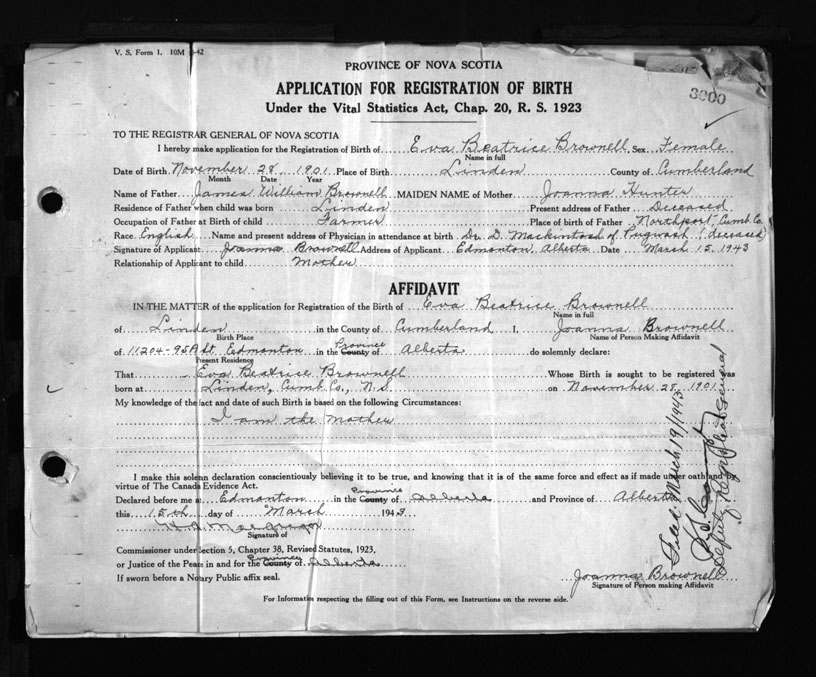 V. S. Form 1. 10M -42
PROVINCE OF NOVA SCOTIA
APPLICATION FOR REGISTRATION OF BIRTH
3000
Under the Vital Statistics Act, Chap. 20, R. S. 1923
TO THE REGISTRAR GENERAL OF NOVA SCOTIA
I hereby make application for the Registration of Birth of Eva Beatrice Brownell Sex Female
Name in full
Date of Birth November 28, 1901 Place of Birth Linden County of Cumberland
Month Date Year
Name of Father James William Brownell MAIDEN NAME of Mother Joanna Hunter
Residence of Father when child was born Linden Present address of Father Deceased
Occupation of Father at Birth of child Farmer Place of birth of Father Northport, Cumb. Co.
Race English Name and present address of Physician in attendance at birth Dr. D. Mackintosh of Pugwash (deceased)
Signature of Applicant Joanna Brownell Address of Applicant Edmonton, Alberta Date March 15, 1943
Relationship of Applicant to child Mother
AFFIDAVIT
IN THE MATTER of the application for Registration of the Birth of Eva Beatrice Brownell
Name in full
of Linden in the County of Cumberland I, Joanna Brownell
Birth Place Name of Person Making Affidavit
of 11204-95A St. Edmonton in the County Province of Alberta do solemnly declare:
Present Residence
That Eva Beatrice Brownell Whose Birth is sought to be registered was
born at Linden, Cumb. Co., N.S. on November 28, 1901
My knowledge of the fact and date of such Birth is based on the following Circumstances:
I am the mother
I make this solemn declaration conscientiously believing it to be true, and knowing that it is of the same force and effect as if made under oath and by
virtue of The Canada Evidence Act.
Declared before me at Edmonton in the County Province of Alberta and Province of Alberta
this 15th day of March 1943
MacGregor
Signature of
Commissioner under Section 5, Chapter 38, Revised Statutes, 1923,
or Justice of the Peace in and for the County Province of Alberta
If sworn before a Notary Public affix seal.
Joanna Brownell
Signature of Person making Affidavit
For Information respecting the filling out of this Form, see Instructions on the reverse side.
March 19/1943
Deputy Registrar General